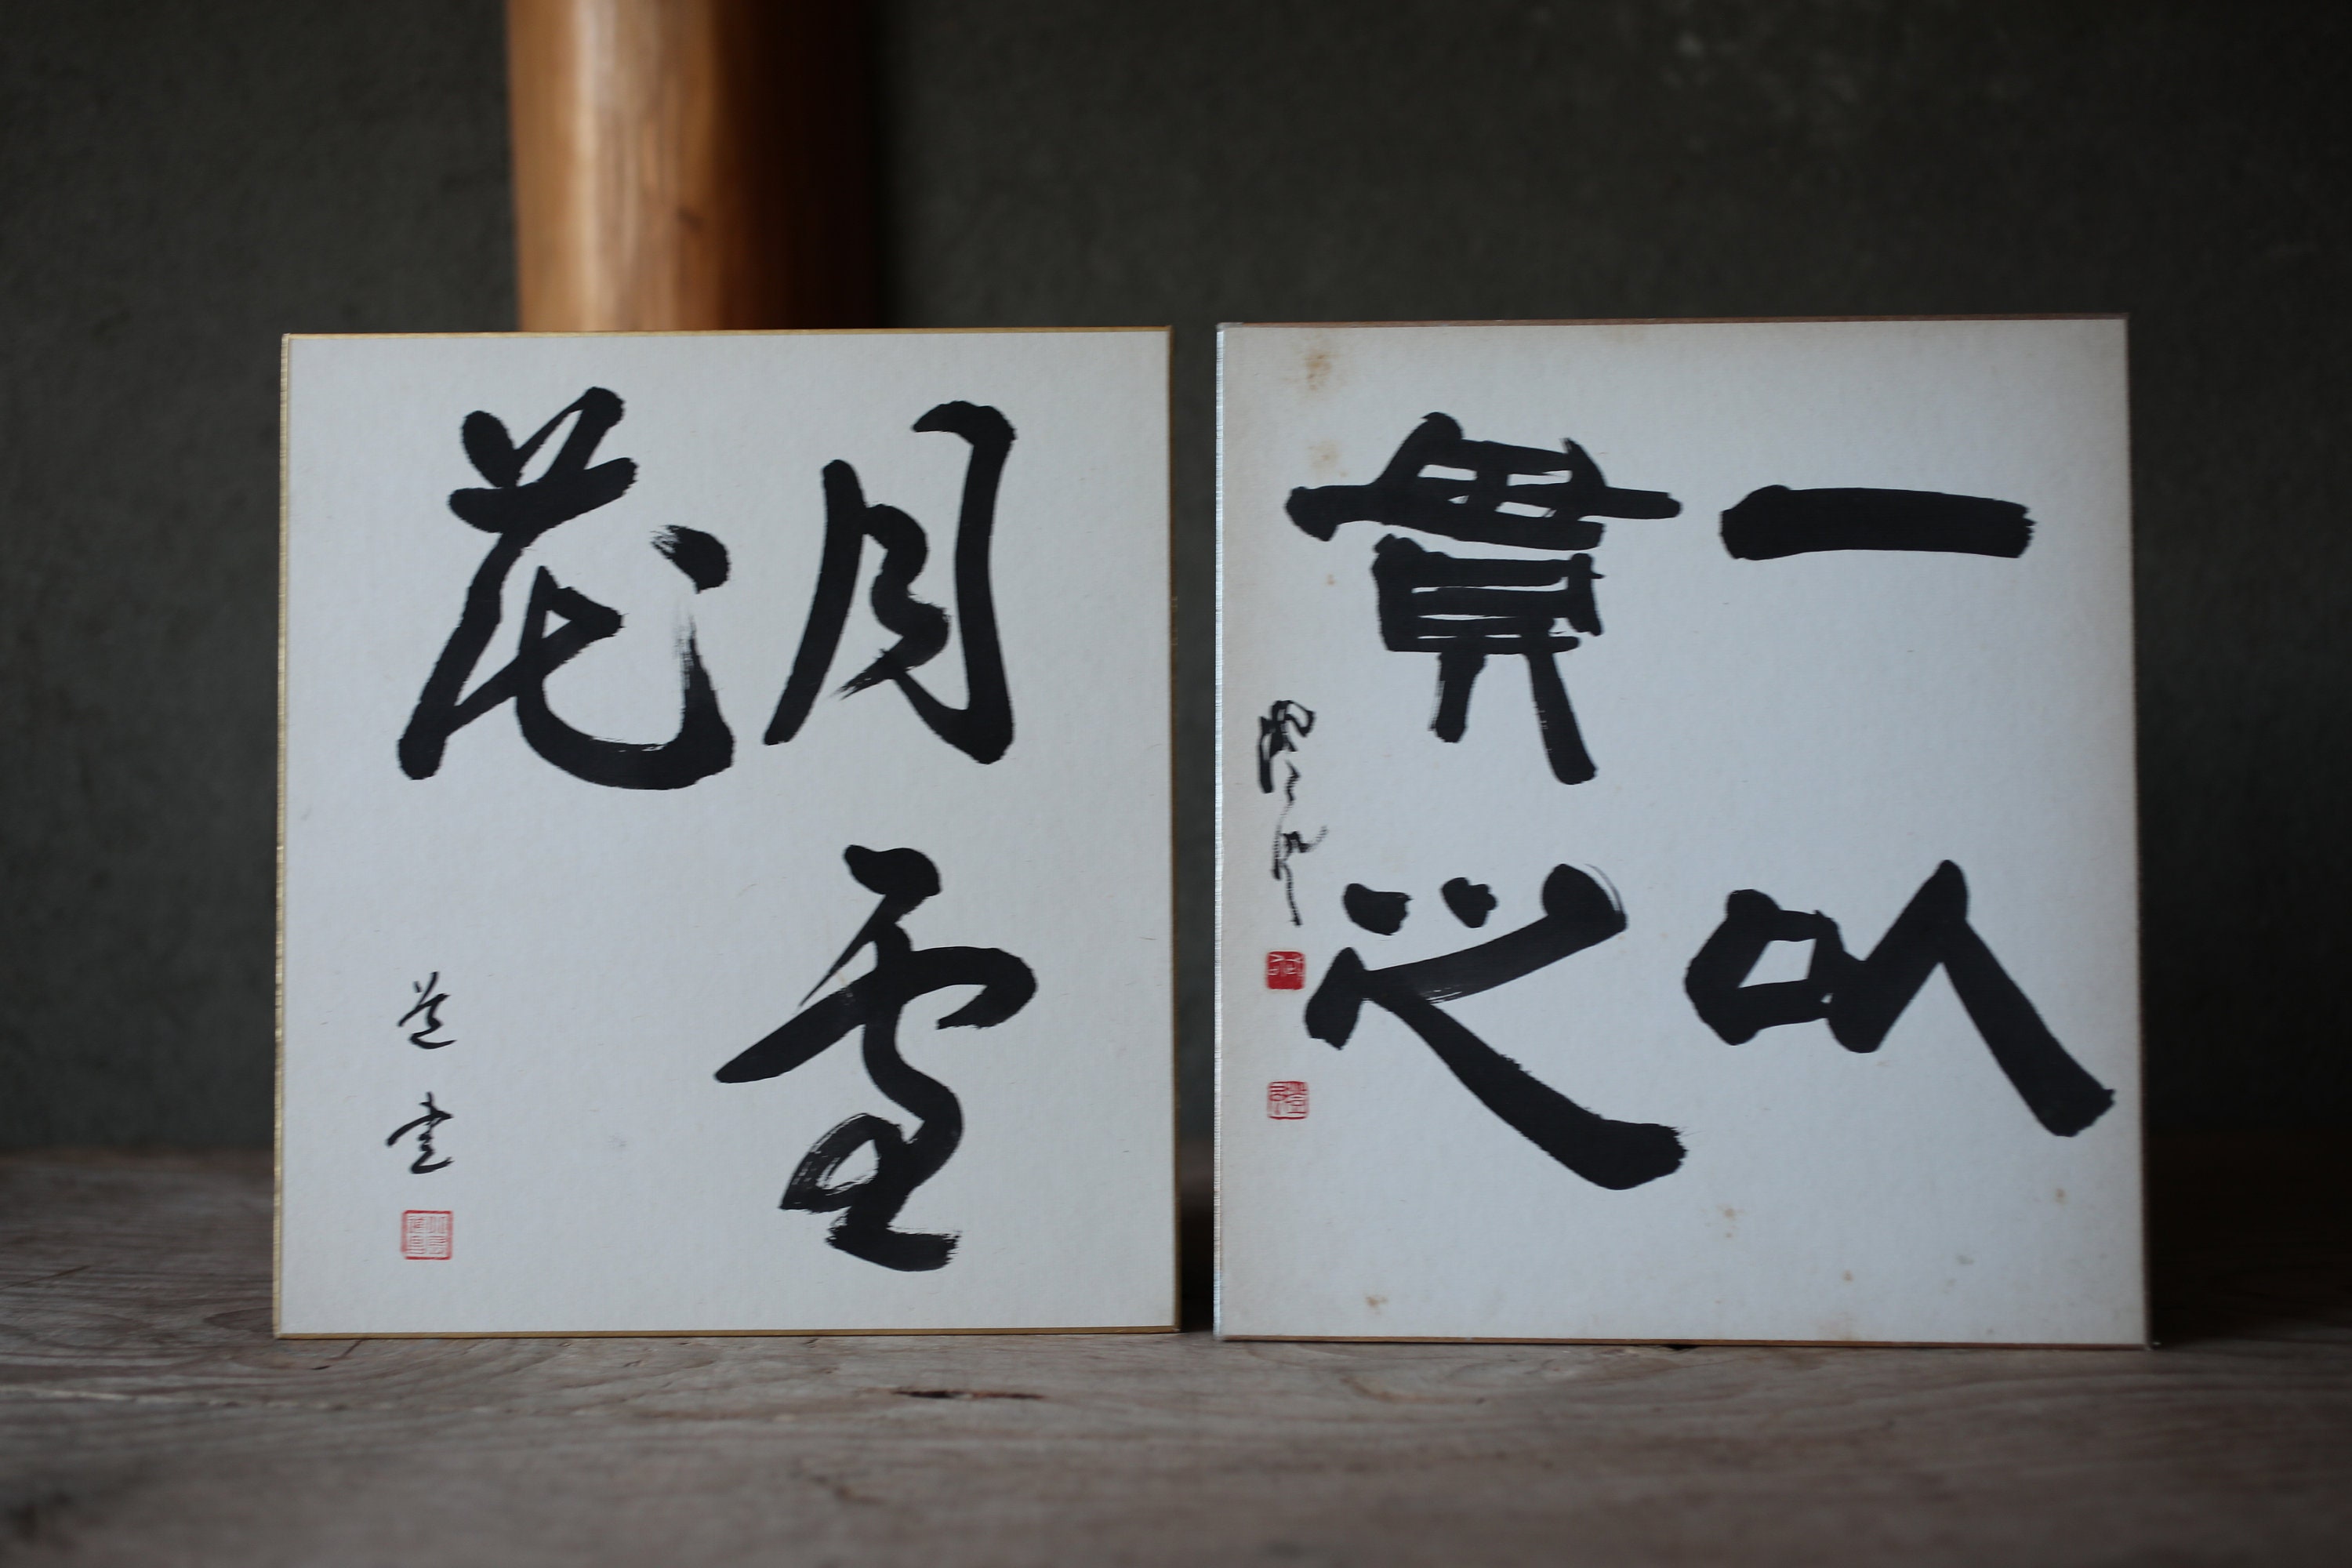 月雪
花
一以
貫之